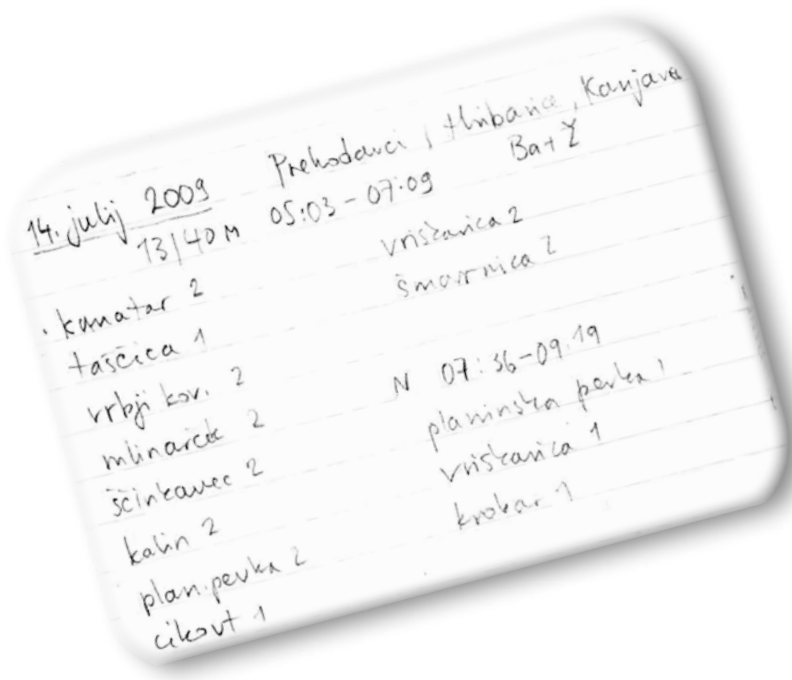 14. julij 2009 Prehodavci, Hribarice, Kanjavec
13/40M 05:03-07:09 Ba+Ž
kamatar 2
taščica 1
vrbji kov. 2
mlinarček 2
ščinkavec 2
kalin 2
plan.pevka 2
cikovt 1
vriskarica 2
šmarnica 2
N 07:36-09:19
planinska pevka 1
vriskarica 1
krokar 1